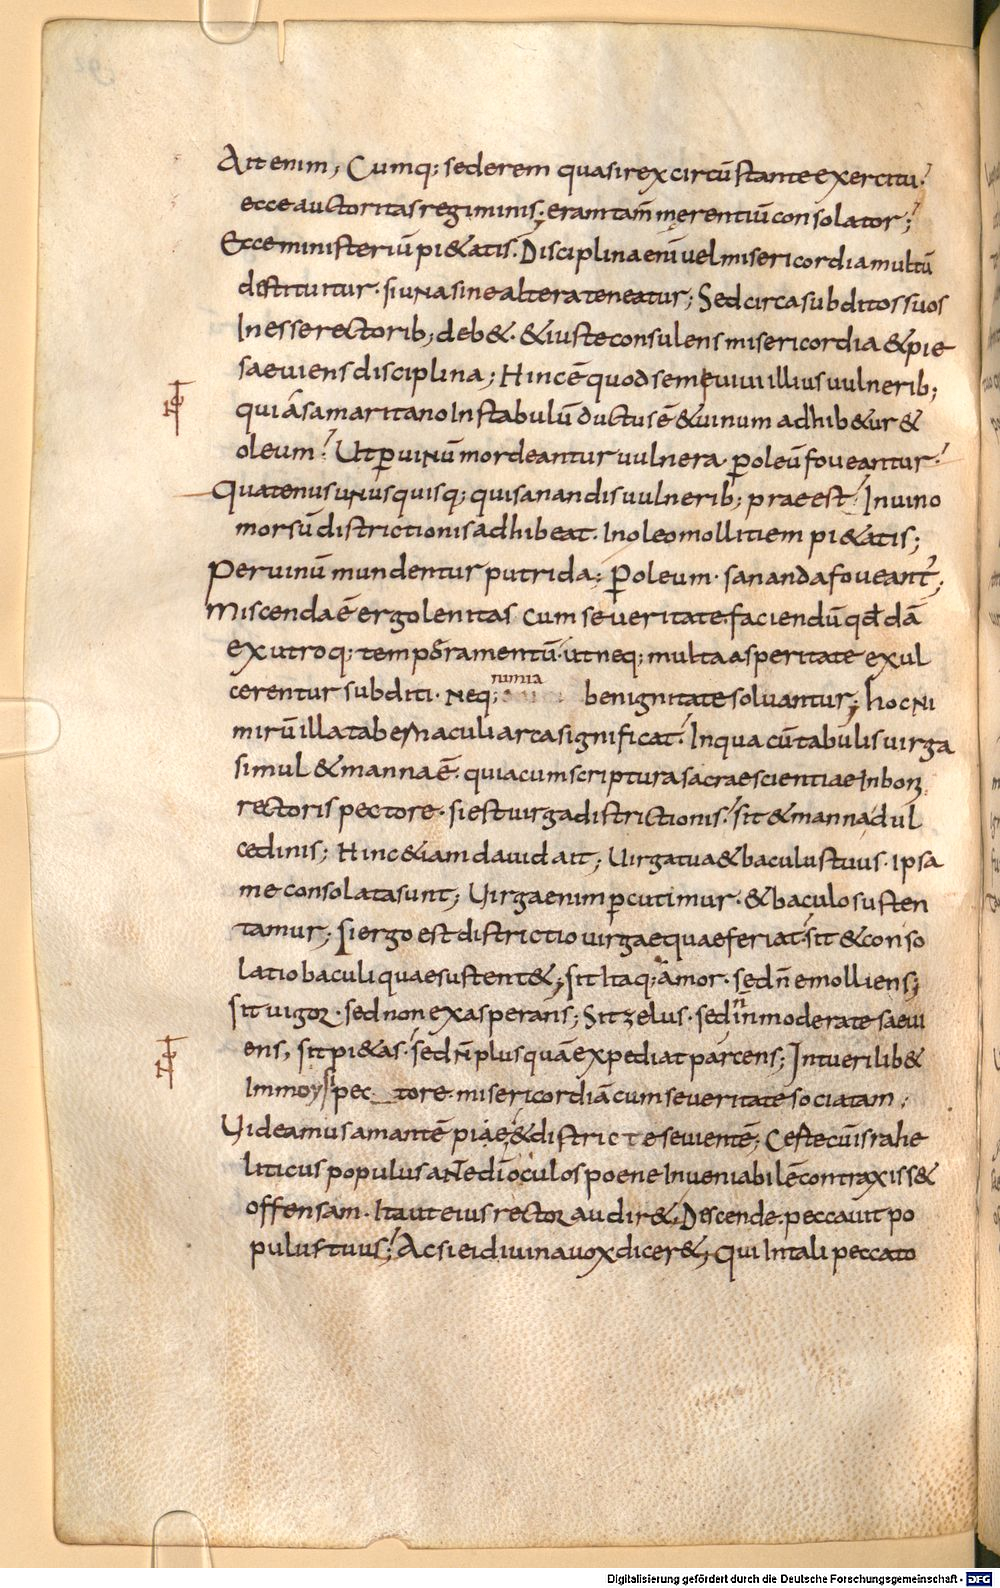 Ait enim; Cumq; sederem quasi rex circū stante exercitu.
ecce auctoritas regiminis; eram tam̄ męrentiū consolator;
Ecce ministeriū pi&atis. Disciplina enī uel misericordia multū
destituitur. si una sine altera teneatur; Sed circa subditos suos
Inesse rectorib; deb&. & iuste consulens misericordia & pie
saeuiens disciplina; Hinc ē quod semiuiui illius uulnerib;
qui á samaritano In stabulū ductus ē & uinum adhib&ur &
oleum. Ut p̲ uinū mordeantur uulnera. p̲ oleū foueantur.
Quatenus unus quisq; qui sanandis uulnerib; prae est. In uino
morsū districtionis adhibeat. In oleo mollitiem pi&atis;
Per uinū mundentur putrida; P̲ oleum. sananda foueant̄;
Miscenda ē ergo lenitas cum seueritate. faciendū q̄d dā
ex utroq; temp̲ramentū. ut neq; multa asperitate exul
cerentur subditi. neq; nimia benignitate soluantur; hoc Ni
mirū illa tabernaculi arca significat. In qua cū tabulis uirga
simul & manna ē. quia cum scriptura sacrae scientiae In boni
rectoris pectore. si est uirga districtionis. sit & manna dul
cedinis; Hinc &iam dauid ait; Uirga tua & baculus tuus. Ipsa
me consolata sunt; Uirga enim p̲cutimur. & baculo susten
tamur; si ergo est districtio uirgae quae feriat. sit & conso
latio baculi quae sustent&; sit Itaq; amor. sed n̄ emolliens;
sit uigor. sed non exasperans; Sit zelus. sed n̄ inmoderate saeui
ens, sit pi&as. sed n̄ plus quā expediat parcens; Intueri lib&
In moysi pectore. misericordiā cum seueritate sociatam.
Uideamus amantē piae, & districte seuientē; Certe cū israhe
liticus populus ante dī oculos poene Inueniabilē contraxiss&
offensam. Ita ut eius rector audir&, Descende. peccauit po
pulus tuus; Ac si ei diuina uox dicer&, Qui In tali peccato
Digitalisierung gefördert durch die Deutsche Forschungsgemeinschaft - DFG